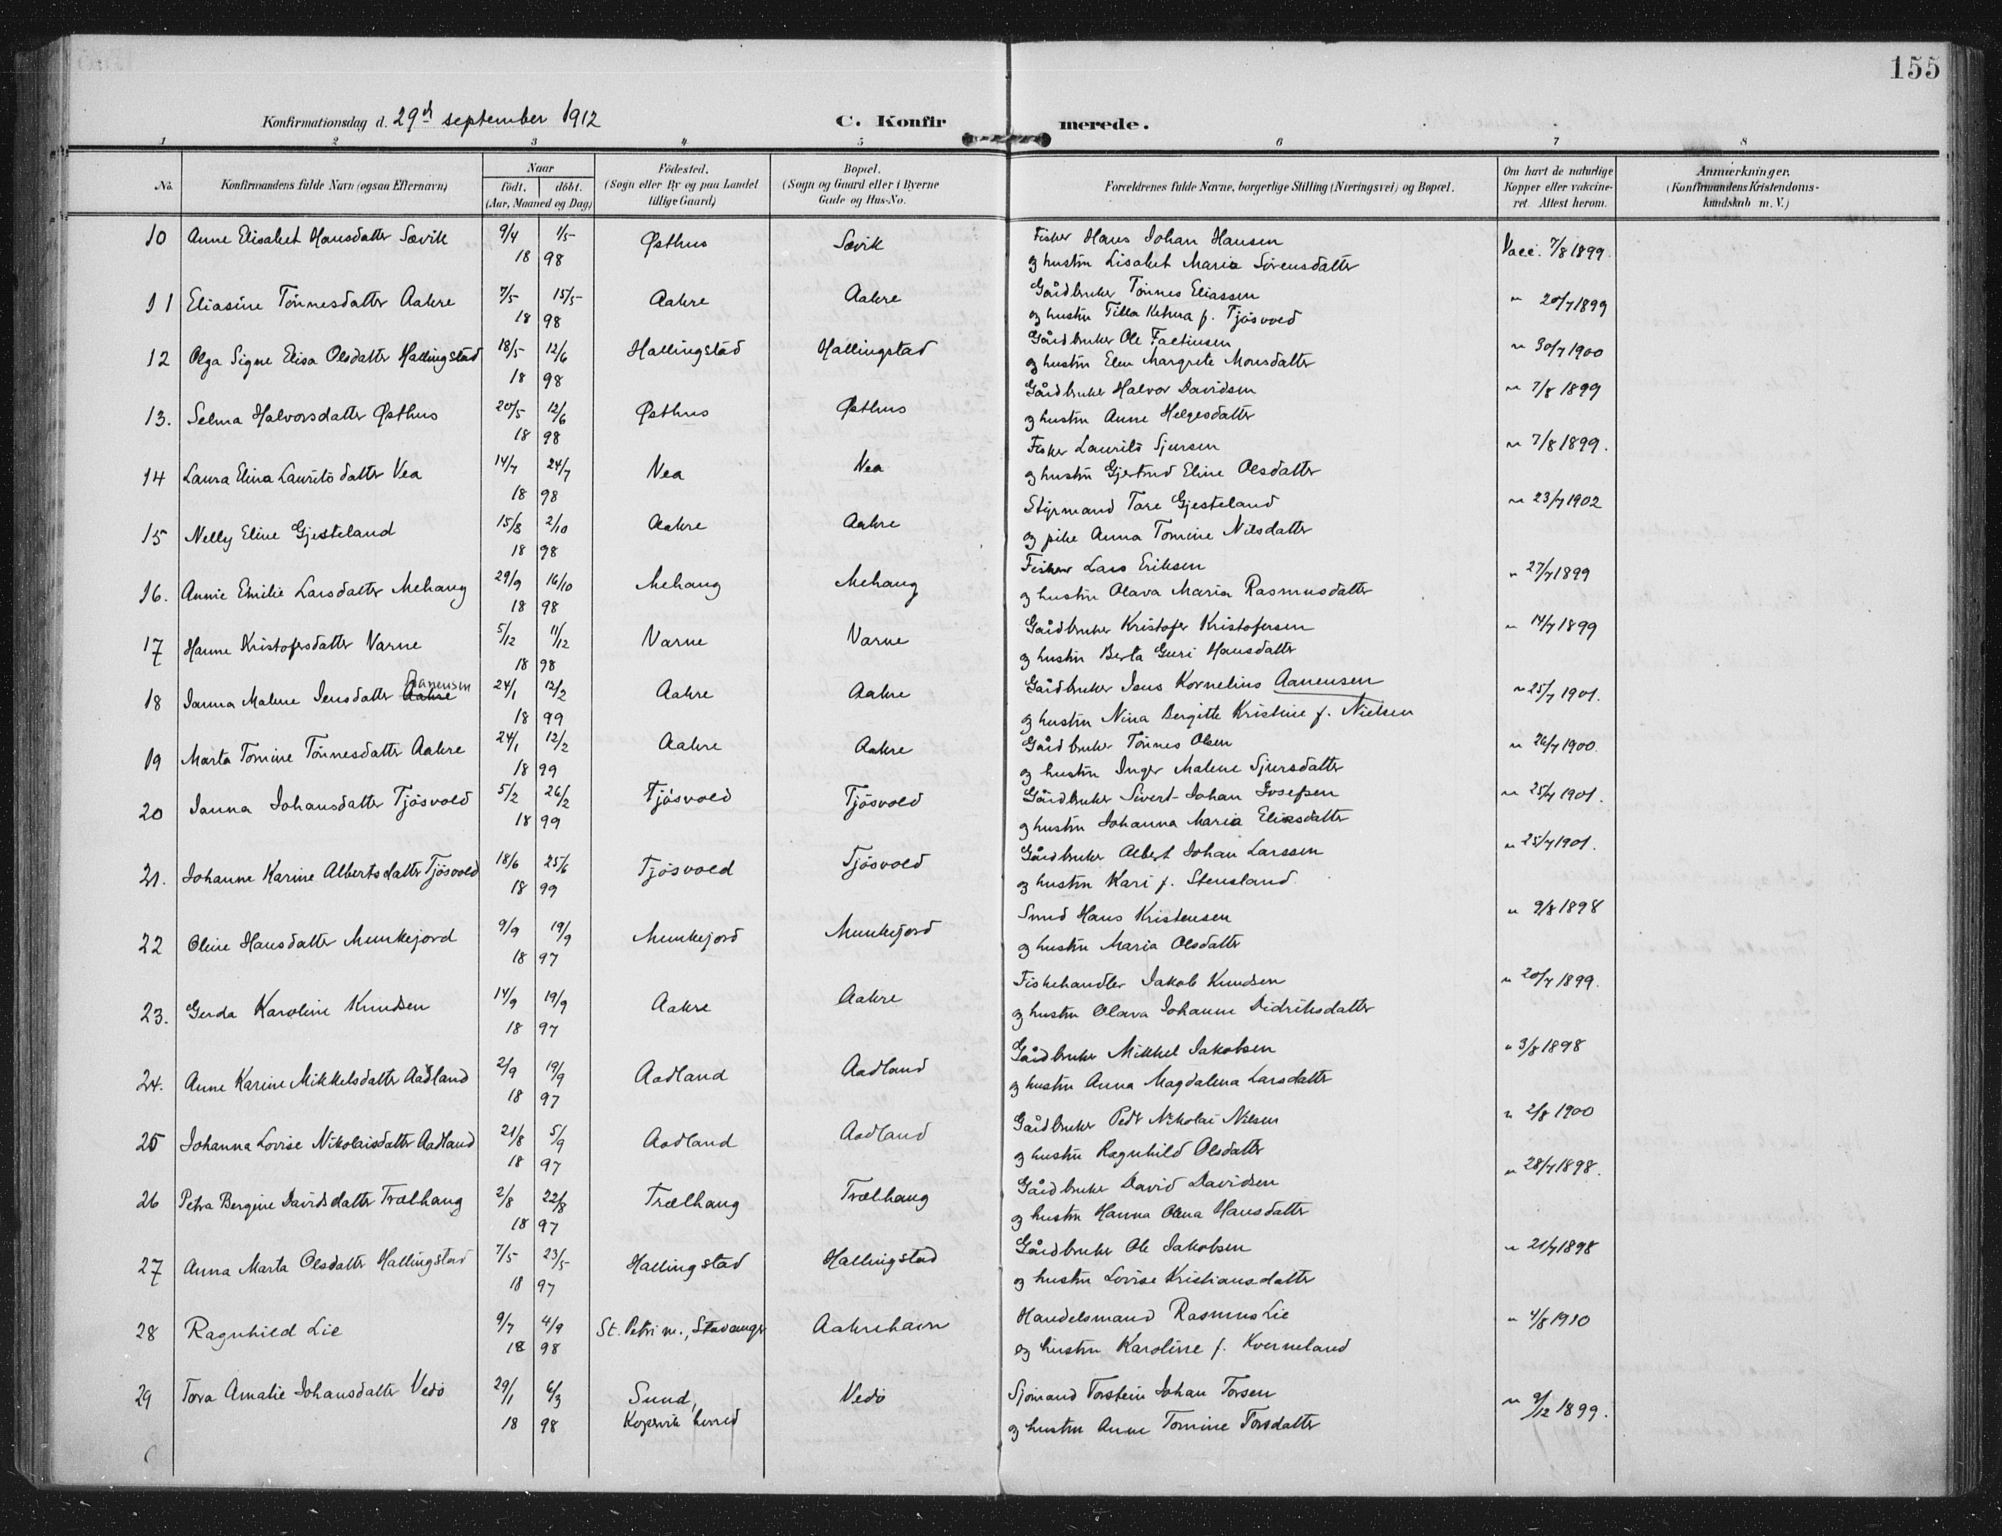 155
Konfirmationsdag d. 29d september 1912 C. Konfirmerede.
1 2 3 4 5 6 7 8
No. Konfirmandens fulde Navn (ogsaa Efternavn) Naar født. døbt. (Aar, Maaned og Dag) Fødested. (Sogn eller By og paa Landet tillige Gaard) Bopæl. (Sogn og Gaard eller i Byerne Gade og Hus-No. Forældrenes fulde Navne, borgerlige Stilling (Næringsvei) og Bopæl. Om havt de naturlige Kopper eller vakcineret. Attest herom. Anmærkninger. (Konfirmandens Kristendomskundskab m. V.)
10 Anne Elisabet Hansdatter Sævik 9/4 1/5 Østhus Sævik Fisker Hans Johan Hansen Vacc. 7/8 1899
18 98 og hustru Lisabet Maria Sørensdatter
11 Eliasine Tönnesdatter Aakre 7/5 15/5 Aakre Aakre Gårdbruker Tönnes Eliassen " 20/7 1899
18 98 og hustru Tilla f. Tjösvold
12 Olga Signe Elisa Olsdatter Hallingstad 18/5 12/6 Hallingstad Hallingstad Gårdbruker Ole " 30/7 1900
18 98 og hustru Elen Margrete Monsdatter
13. Selma Halvorsdatter Østhus 20/5 12/6 Østhus Østhus Gårdbruker Halvor Davidsen " 7/8 1899
18 98 og hustru Anne Helgesdatter
14 Laura Elina Lauritsdatter Vea 14/7 24/7 Vea Vea Fisker Laurits Sjursen " 7/8 1899.
18 98 og hustru Gjertrud Eline Olsdatter
15 Nelly Eline Gjesteland 15/8 2/10 Aakre Aakre Styrmand Tore Gjesteland " 23/7 1902
18 98 og pike Anna Tomine Nilsdatter
16. Annie Emilie Larsdatter Mehaug 29/9 16/10 Mehaug Mehaug Fisker Lars Eriksen " 27/7 1899
18 98 og hustru Olava Maria Rasmusdatter
17 Hanne Kristofersdatter Varne 5/12 11/12 Varne Varne Gårdbruker Kristofer Kristofersen " 14/7 1899
18 98 og hustru Berta Guri Hansdatter
18 Janna Malene Jensdatter Aakre Aanensen 24/1 12/2 Aakre Aakre Gårdbruker Jens Kornelius Aanensen " 25/7 1901.
18 99 og hustru Nina Bergitte Kristine f. Nielsen
19 Marta Tomine Tönnesdatter Aakre 24/1 12/2 Aakre Aakre Gårdbruker Tönnes Olsen " 26/7 1900.
18 99 og hustru Inger Malene Sjursdatter
20 Janna Johansdatter Tjösvold 5/2 26/2 Tjösvold Tjösvold Gårdbruker Sivert Johan Josefsen " 25/7 1901.
18 99 og hustru Johanna Maria Eliasdatter
21. Johanne Karine Albertsdatter Tjösvold 18/6 25/6 Tjösvold Tjösvold Gårdbruker Albert Johan Larssen " 25/7 1901.
18 99 og hustru Kari f. Stensland.
22 Oline Hansdatter Munkejord 9/9 19/9 Munkejord Munkejord Smed Hans Kristensen " 9/8 1898
18 97 og hustru Maria Olsdatter
23. Gerda Karoline Knudsen 14/9 19/9 Aakre Aakre Fiskehandler Jakob Knudsen " 20/7 1899.
18 97 og hustru Olava Johanne Didriksdatter
24. Anne Karine Mikkelsdatter Aadland 2/9 19/9 Aadland Aadland Gårdbruker Mikkel Jakobsen " 3/8 1898
18 97 og hustru Anna Magdalena Larsdatter
25 Johanna Lovise Nikolaisdatter Aadland 21/8 5/9 Aadland Aadland Gårdbruker Pedr Nikolai Nilsen " 2/8 1900
18 97 og hustru Ragnhild Olsdatter
26 Petra Bergine Davidsdatter Trælhaug 2/8 22/8 Trælhaug Trælhaug Gårdbruker David Davidsen " 28/7 1898.
18 97 og hustru Hanna Olena Hansdatter
27 Anna Marta Olsdatter Hallingstad 7/5 23/5 Hallingstad Hallingstad Gårdbruker Ole Jakobsen " 21/7 1898
18 97 og hustru Lovise Kristiansdatter
28 Ragnhild Lie 9/7 4/9 St. Petri m., Stavanger Aakrehavn Handelsmand Rasmus Lie " 4/8 1910
18 98 og hustru Karoline f. Kverneland
29 Tora Amalie Johansdatter Vedö 29/1 6/3 Sund, Vedö Sjömand Torstein Johan Torsen " 9/12 1899.
18 98 Kopervik herred og hustru Anne Tomine Torsdatter